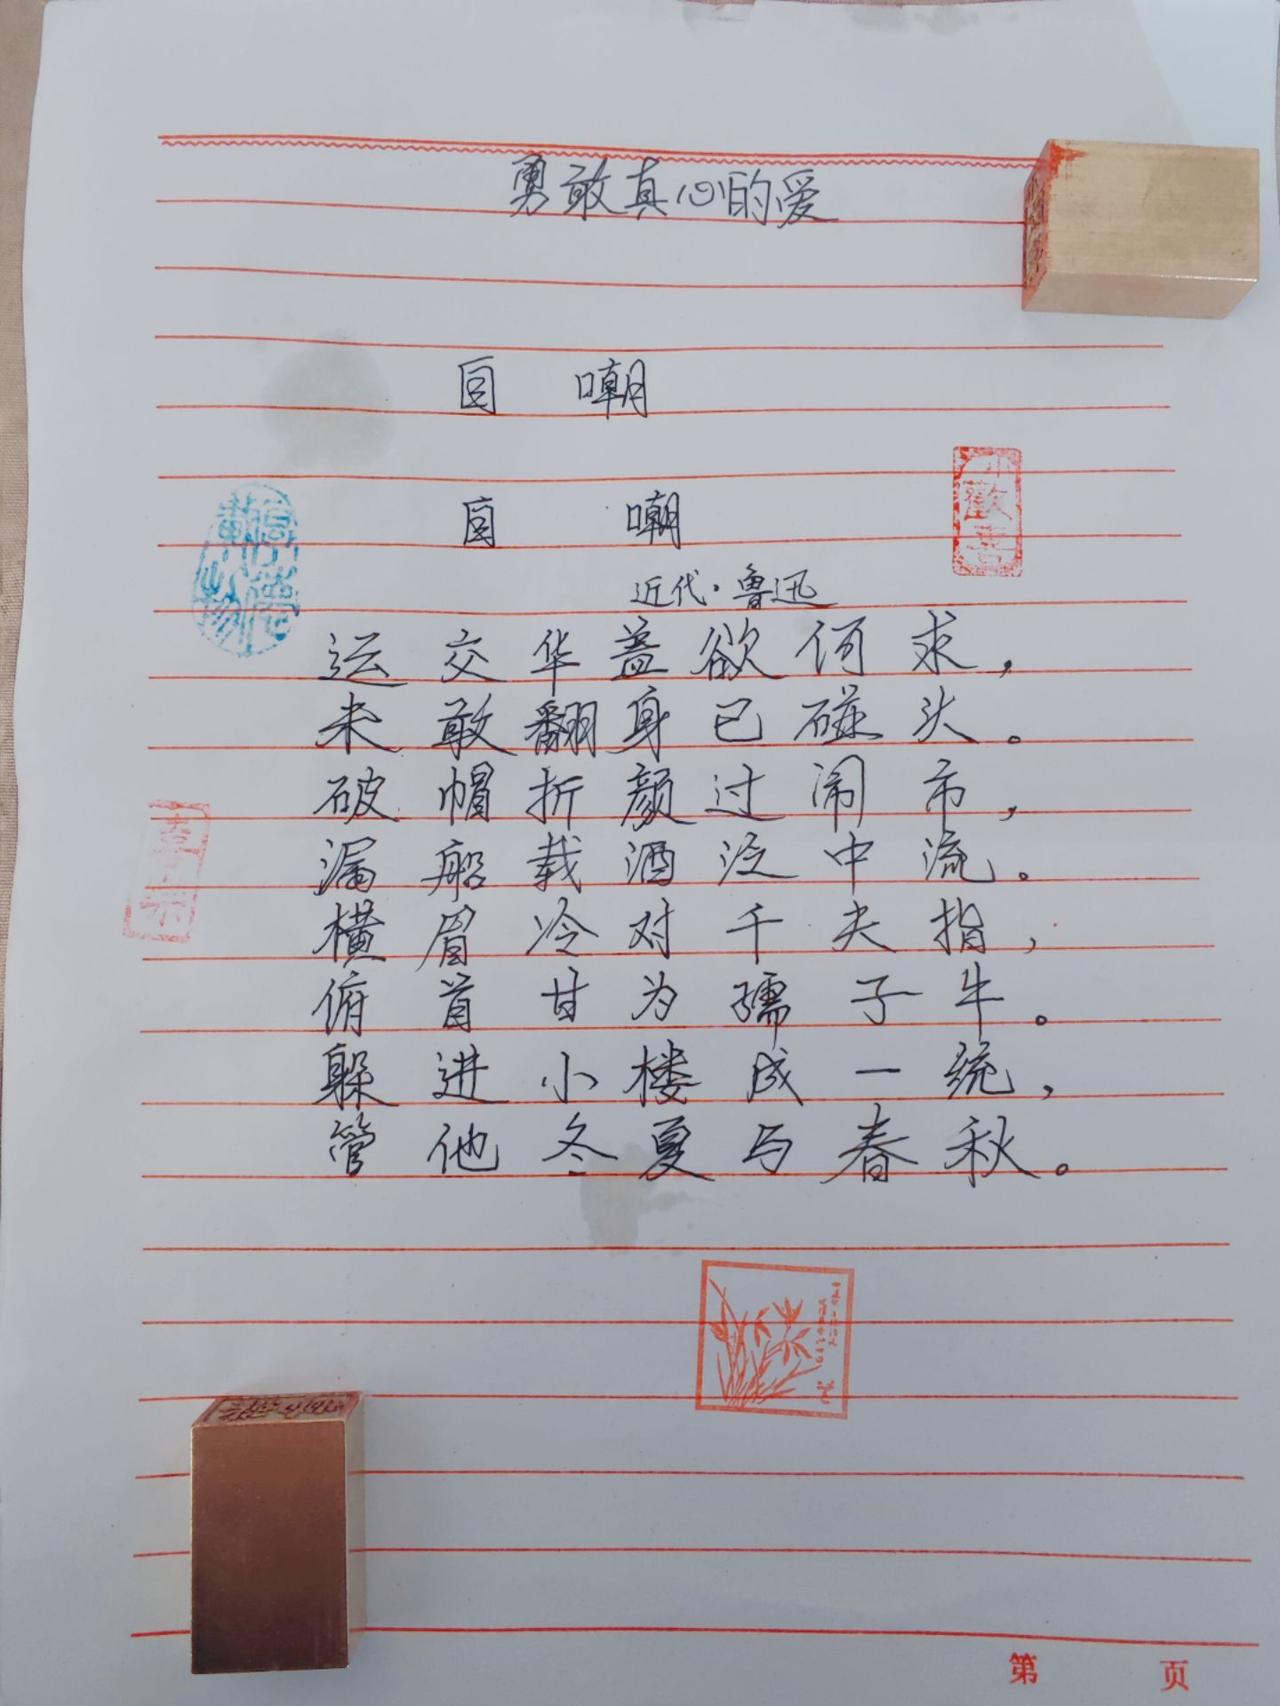 勇敢真心的爱
自 嘲
自 嘲
近代·鲁迅
运交华盖欲何求，
未敢翻身已碰头。
破帽折颜过闹市，
漏船载酒泛中流。
横眉冷对千夫指，
俯首甘为孺子牛。
躲进小楼成一统，
管他冬夏与春秋。
小歡喜
厚德載物
第 页